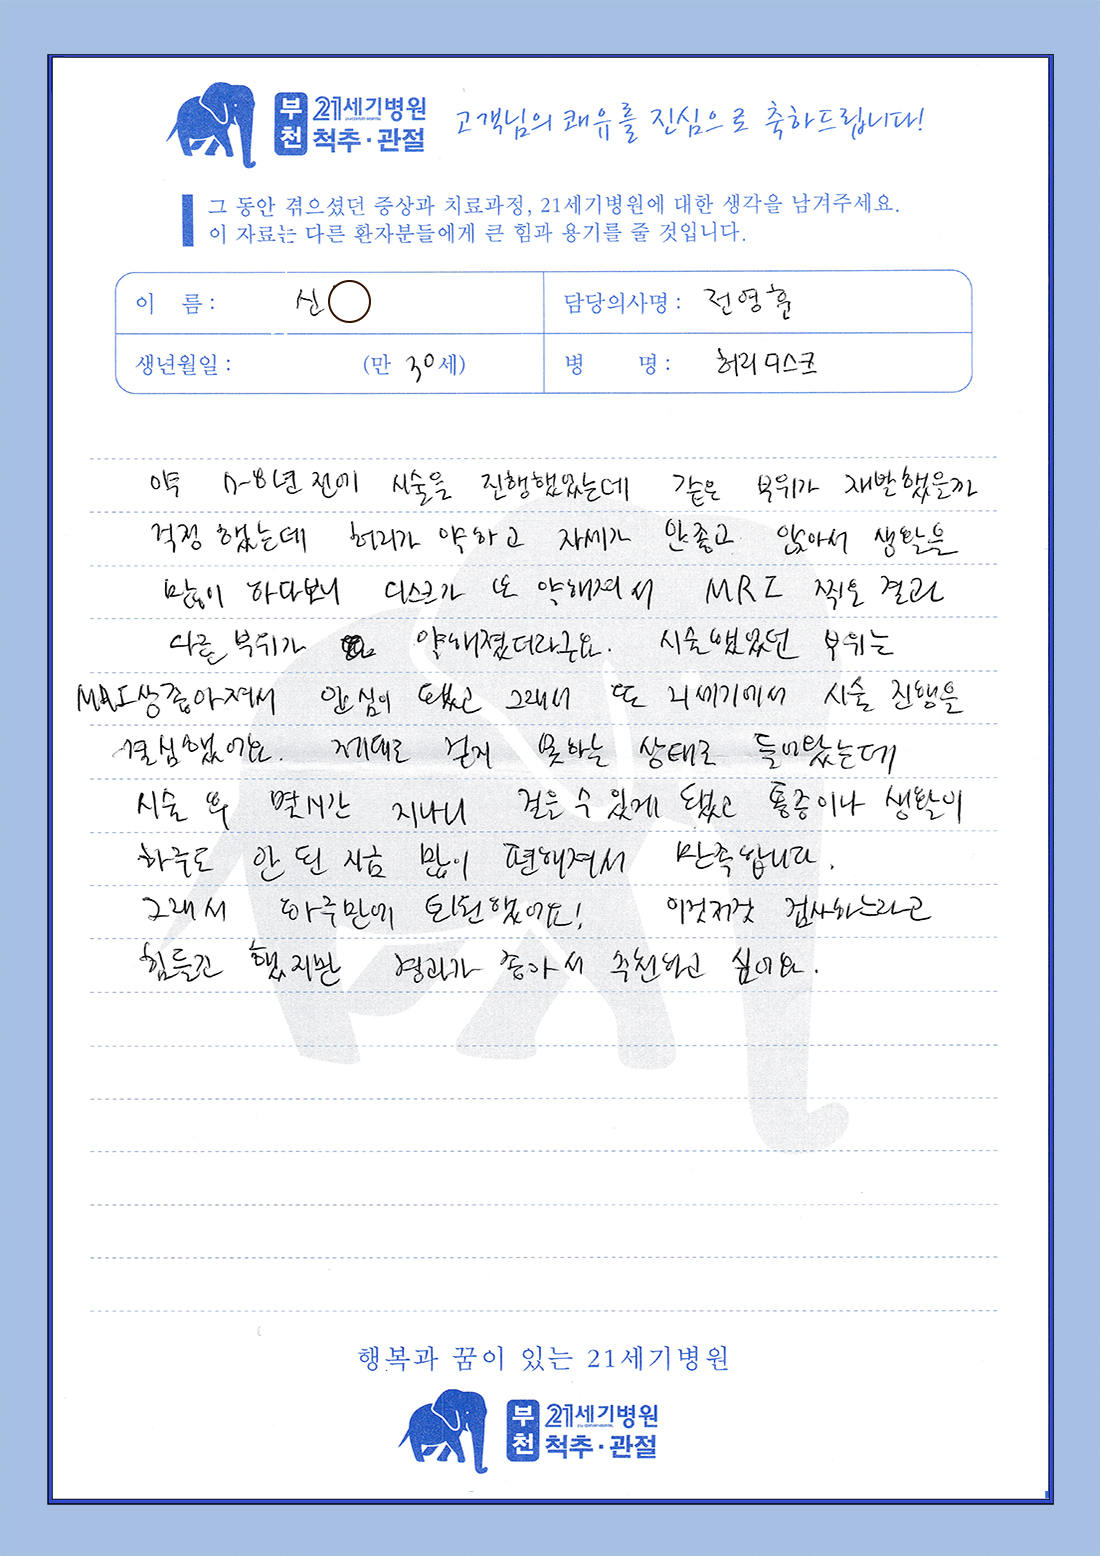 부천 21세기병원 척추·관절
고객님의 쾌유를 진심으로 축하드립니다!
그 동안 겪으셨던 증상과 치료과정, 21세기병원에 대한 생각을 남겨주세요.
이 자료는 다른 환자분들에게 큰 힘과 용기를 줄 것입니다.
이 름 : 신
담당의사명 : 전영훈
생년월일 : (만 30세)
병 명 : 허리디스크
약 7~8년 전에 시술을 진행했었는데 같은 부위가 재발했을까
걱정했는데 허리가 약하고 자세가 안좋고 앉아서 생활을
많이 하다보니 디스크가 또 약해져서 MRI 찍은 결과
다른 부위가 약해졌더라구요. 시술했었던 부위는
MRI상 좋아져서 안심이 됐고 그래서 또 21세기에서 시술 진행을
결심했어요. 제대로 걷지 못하는 상태로 들어왔는데
시술 후 몇시간 지나니 걸을 수 있게 됐고 통증이나 생활이
하루도 안 된 지금 많이 편해져서 만족합니다.
그래서 하루만에 퇴원했어요! 이것저것 검사하느라고
힘들긴 했지만 결과가 좋아서 추천하고 싶어요.
행복과 꿈이 있는 21세기병원
부천 21세기병원 척추·관절